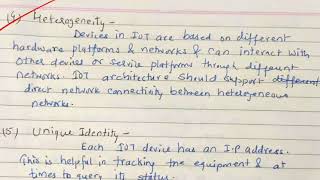 (4) Heterogeneity -
Devices in IOT are based on different
hardware platforms & networks & can interact with
other devices or service platforms through different
networks. IOT architecture should support different
direct network connectivity between heterogeneous
networks.
(5.) Unique Identity -
Each IOT device has an I.P address.
This is helpful in tracking the equipment & at
times to query its status.